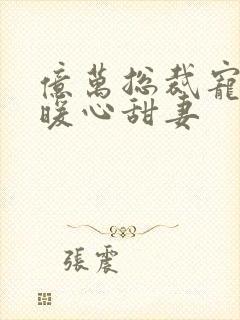 億萬總裁寵
暖心甜妻
張震